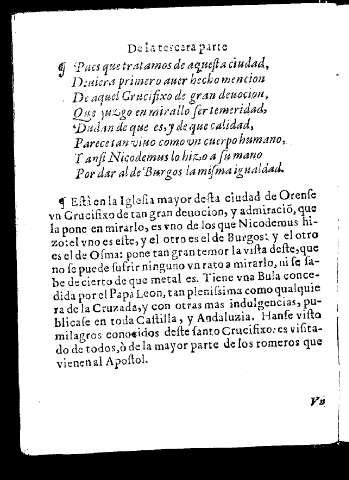 De la tercera parte
¶ Pues que tratamos de aquesta ciudad,
Deuiera primero auer hecho mencion
De aquel Crucifixo de gran deuocion,
Que juzgo en mirallo ser temeridad,
Dudan de que es, y de que calidad,
Parece tan viuo como vn cuerpo humano,
Y ansi Nicodemus lo hizo a su mano
Por dar al de Burgos la misma igualdad.
¶ Està en la Iglesia mayor desta ciudad de Orense
vn Crucifixo de tan gran deuocion, y admiraciõ, que
la pone en mirarlo, es vno de los que Nicodemus hi-
zo: el vno es este, y el otro es el de Burgos: y el otro
es el de Osma: pone tan gran temor la vista deste, que
no se puede sufrir ninguno vn rato a mirarlo, ni se sa-
be de cierto de que metal es. Tiene vna Bula conce-
dida por el Papa Leon, tan plenissima como qualquie
ra de la Cruzada, y con otras mas indulgencias, pu-
blicase en toda Castilla, y Andaluzia. Hanse visto
milagros conocidos deste santo Crucifixo: es visita-
do de todos, ò de la mayor parte de los romeros que
vienen al Apostol.
Vn